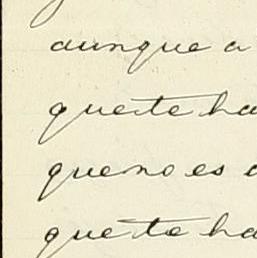 aunque a
que te ha
que no es
que te ha